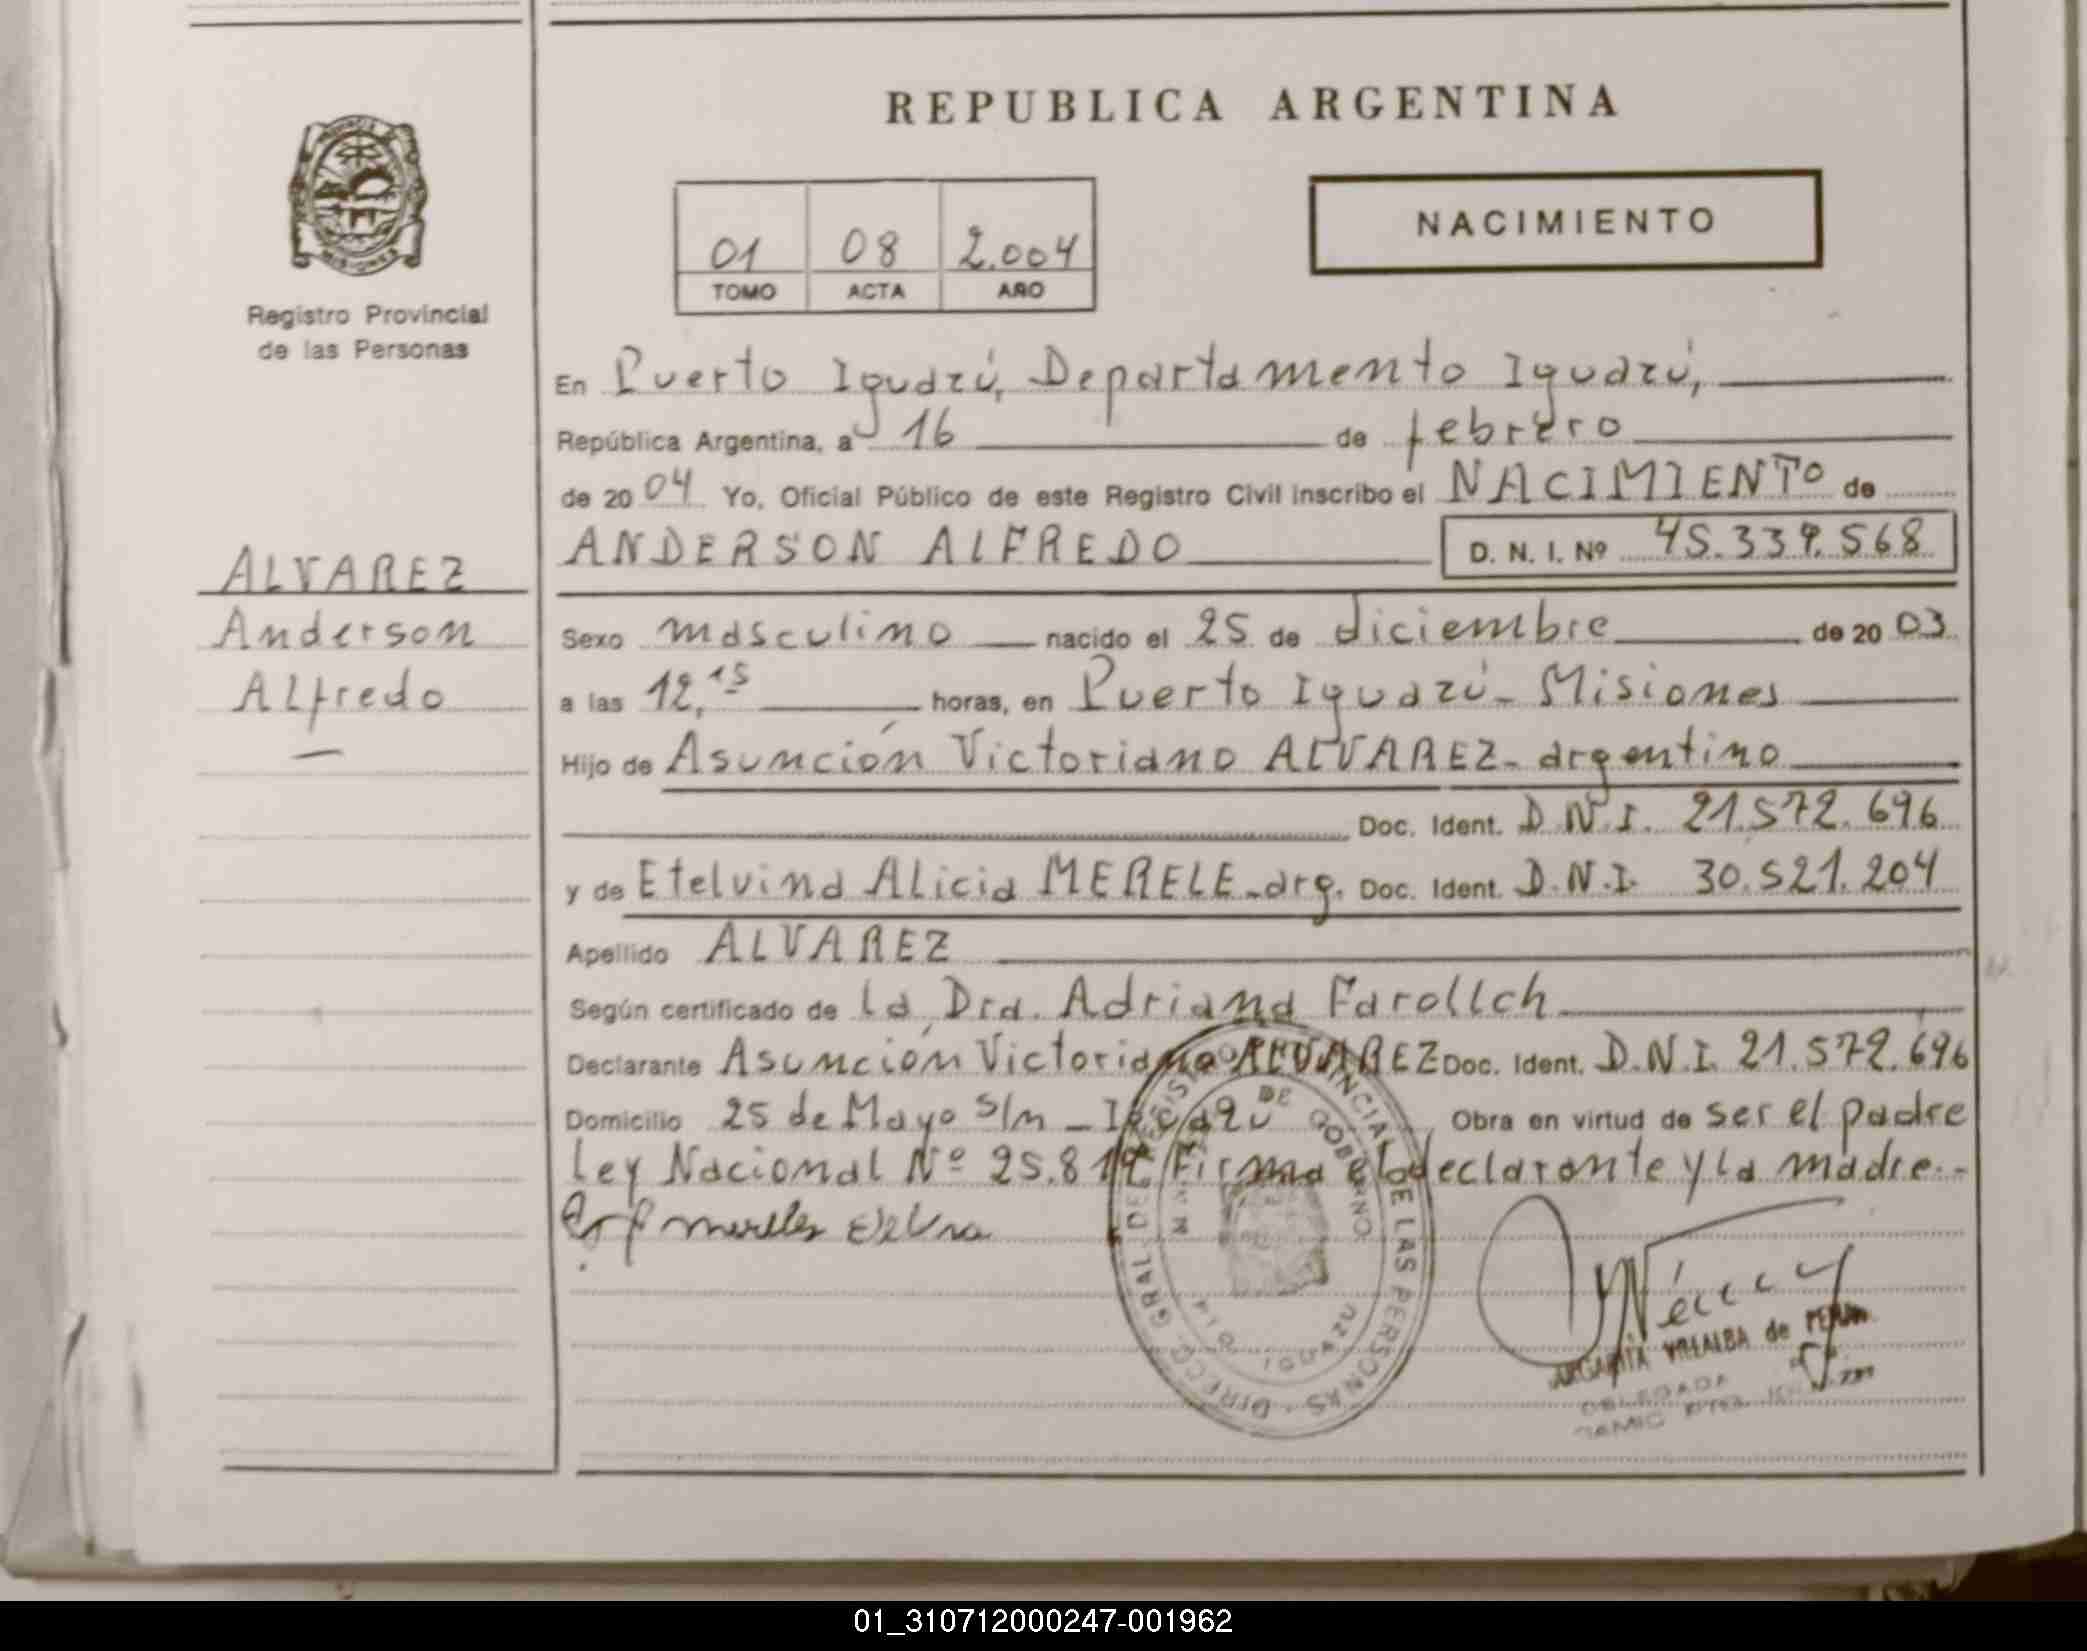 REPUBLICA ARGENTINA
NACIMIENTO
01 08 2.004
TOMO ACTA AÑO
Registro Provincial
de las Personas
En Puerto Iguazú, Departamento Iguazú,
República Argentina, a 16 de febrero
de 20 04 Yo, Oficial Público de este Registro Civil inscribo el NACIMIENTO de
ANDERSON ALFREDO D. N. I. Nº 45.339.568
ALVAREZ
Anderson
Alfredo
Sexo masculino nacido el 25 de diciembre de 20 03
a las 12,15 horas, en Puerto Iguazú - Misiones
Hijo de Asunción Victoriano ALVAREZ - argentino
Doc. Ident. D.N.I. 21.572.696
y de Etelvina Alicia MERELE - arg. Doc. Ident. D.N.I. 30.521.204
Apellido ALVAREZ
Según certificado de la Dra. Adriana Farollch
Declarante Asunción Victoriano ALVAREZ Doc. Ident. D.N.I. 21.572.696
Domicilio 25 de Mayo s/n - Obra en virtud de ser el padre
Ley Nacional Nº 25.819 Firma el declarante y la madre.-
REGISTRO PROVINCIAL DE LAS PERSONAS - DIRECC. GRAL. DEL
DE GOBIERNO
IGUAZU
VILLALBA de
DELEGADA
01_310712000247-001962